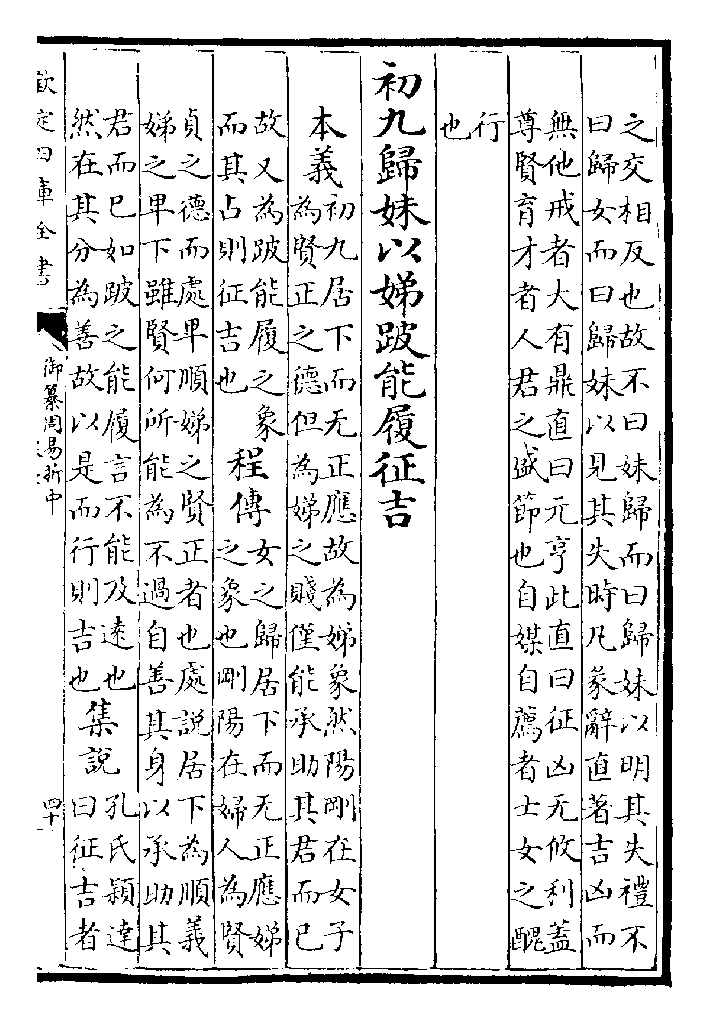 之交相反也故不曰妹歸而曰歸妹以明其失禮不
曰歸女而曰歸妹以見其失時凡彖辭直著吉凶而
無他戒者大有鼎直曰元亨此直曰征凶无攸利蓋
尊賢育才者人君之盛節也自媒自薦者士女之醜
行
也
初九歸妹以娣跛能履征吉
本義初九居下而无正應故為娣象然陽剛在女子
為賢正之德但為娣之賤僅能承助其君而已
故又為跛能履之象
而其占則征吉也
程傳女之歸居下而无正應娣
之象也剛陽在婦人為賢
貞之德而處卑順娣之賢正者也處說居下為順義
娣之卑下雖賢何所能為不過自善其身以承助其
君而已如跛之能履言不能及遠也
然在其分為善故以是而行則吉也
集說孔氏穎達
曰征吉者
欽定四庫全書
御纂周易折中
四十